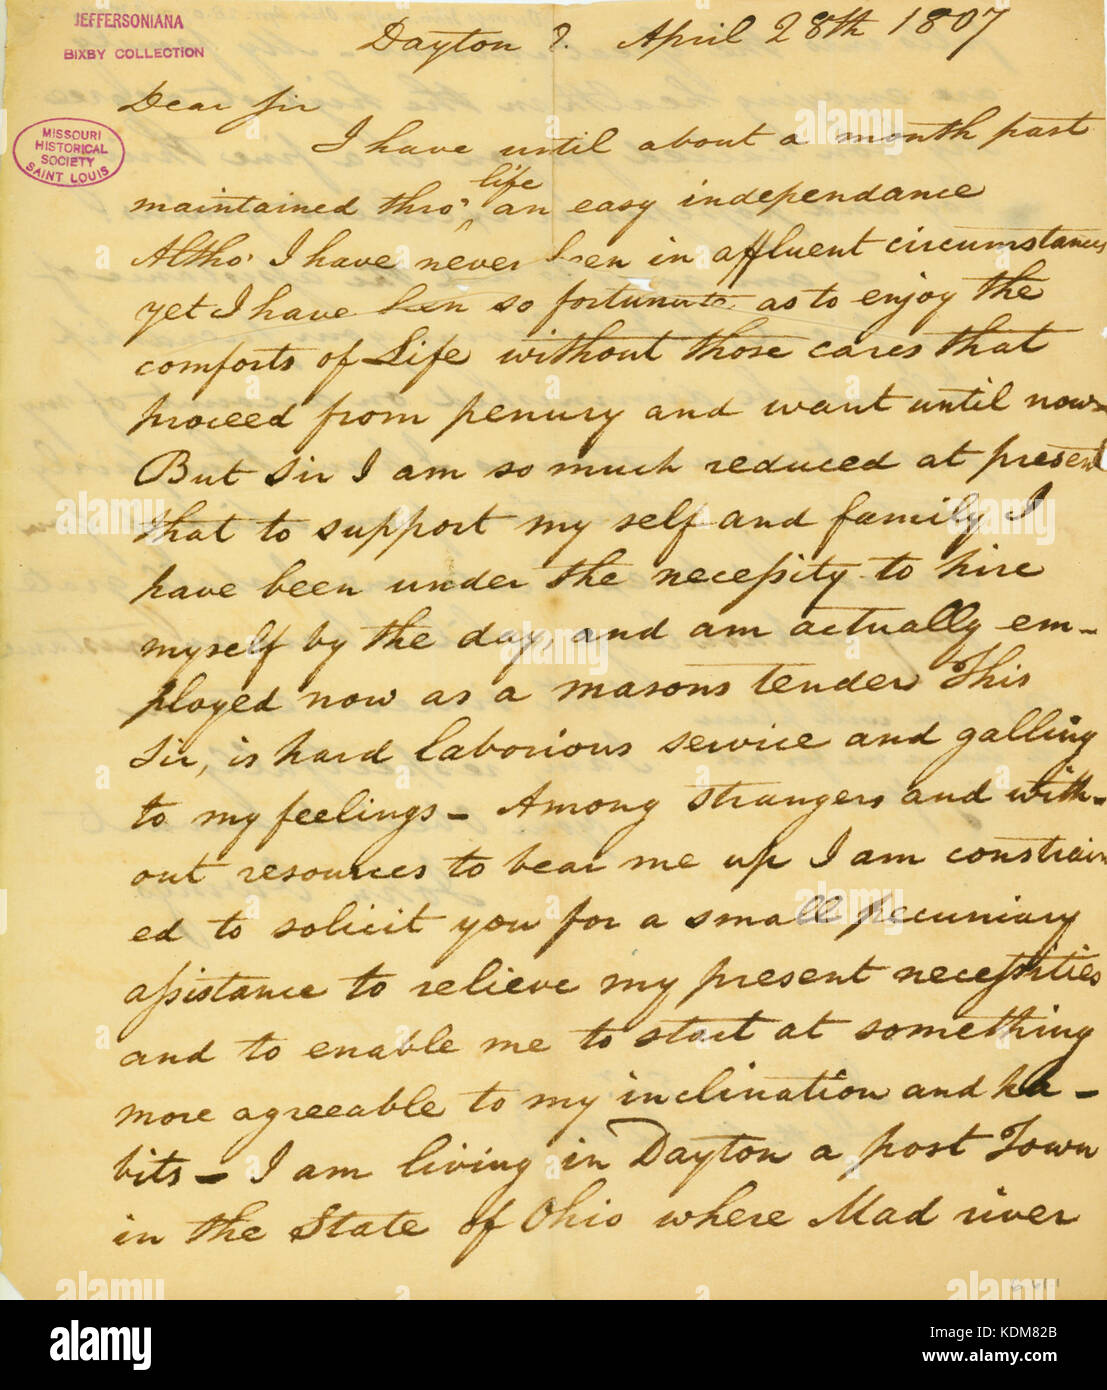 JEFFERSONIANA
BIXBY COLLECTION
MISSOURI
HISTORICAL
SOCIETY
SAINT LOUIS
Dayton April 28th 1807
Dear Sir
I have until about a month past
life
maintained thro' ^ an easy independance
Altho' I have never been in affluent circumstances
yet I have been so fortunate as to enjoy the
comforts of Life without those cares that
proceed from penury and want until now–
But Sir I am so much reduced at present
that to support my self and family I
have been under the necessity to hire
myself by the day, and am actually em–
ployed now as a masons tender This
Sir, is hard laborious service and galling
to my feelings – Among strangers and with–
out resources to bear me up I am constrain
ed to solicit you for a small pecuniary
assistance to relieve my present necessities
and to enable me to start at something
more agreeable to my inclination and ha–
bits – I am living in Dayton a post Town
in the State of Ohio where Mad river
alamy
Image ID: KDM82B
www.alamy.com